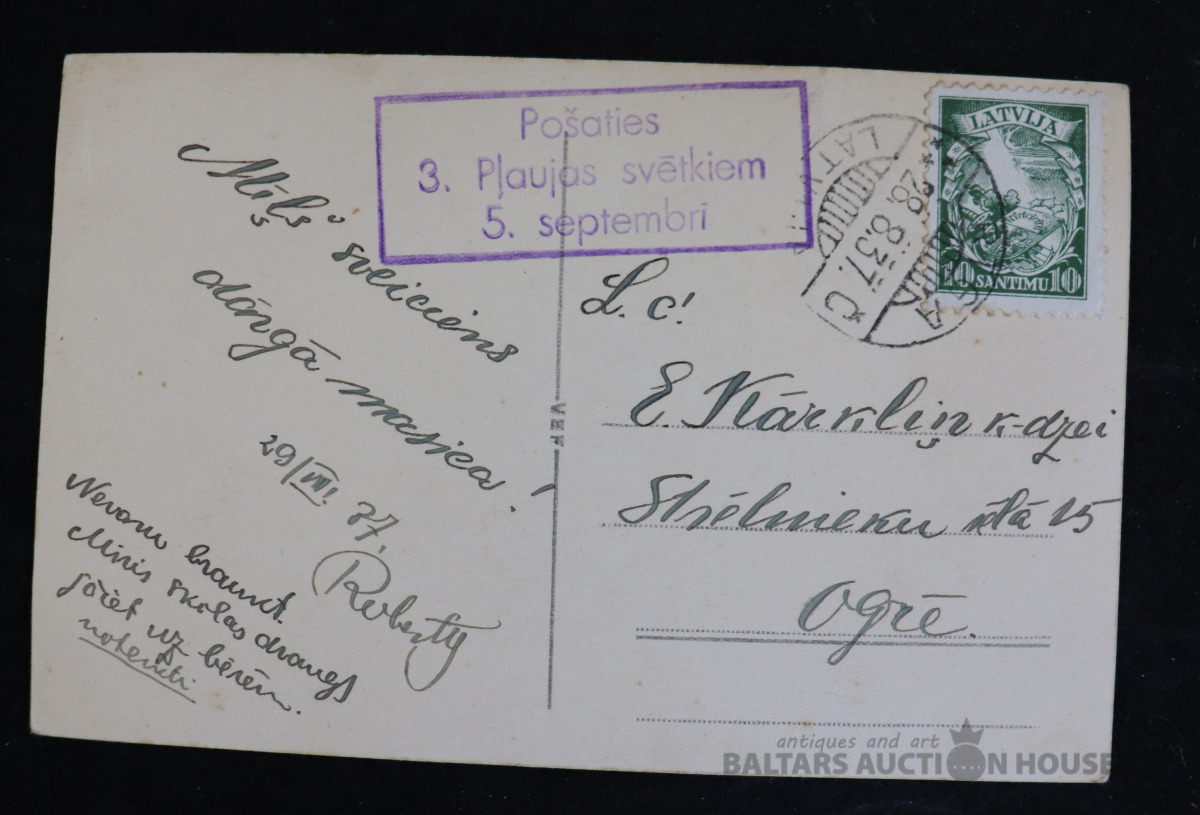 Pošaties
3. Pļaujas svētkiem
5. septembrī
LATVIJA
28.8.37.
LATVIJA
10 SANTIMU 10
Mīļš sveiciens
dārgā masiņa!
29/VIII 37.
Roberts
Nevaru braukt.
skolas draugs
uz bērēm.
VEF
L. c!
E. Kārkliņ k-dzei
Strēlnieku ielā 15
Ogrē.
antiques and art
BALTARS AUCTION HOUSE